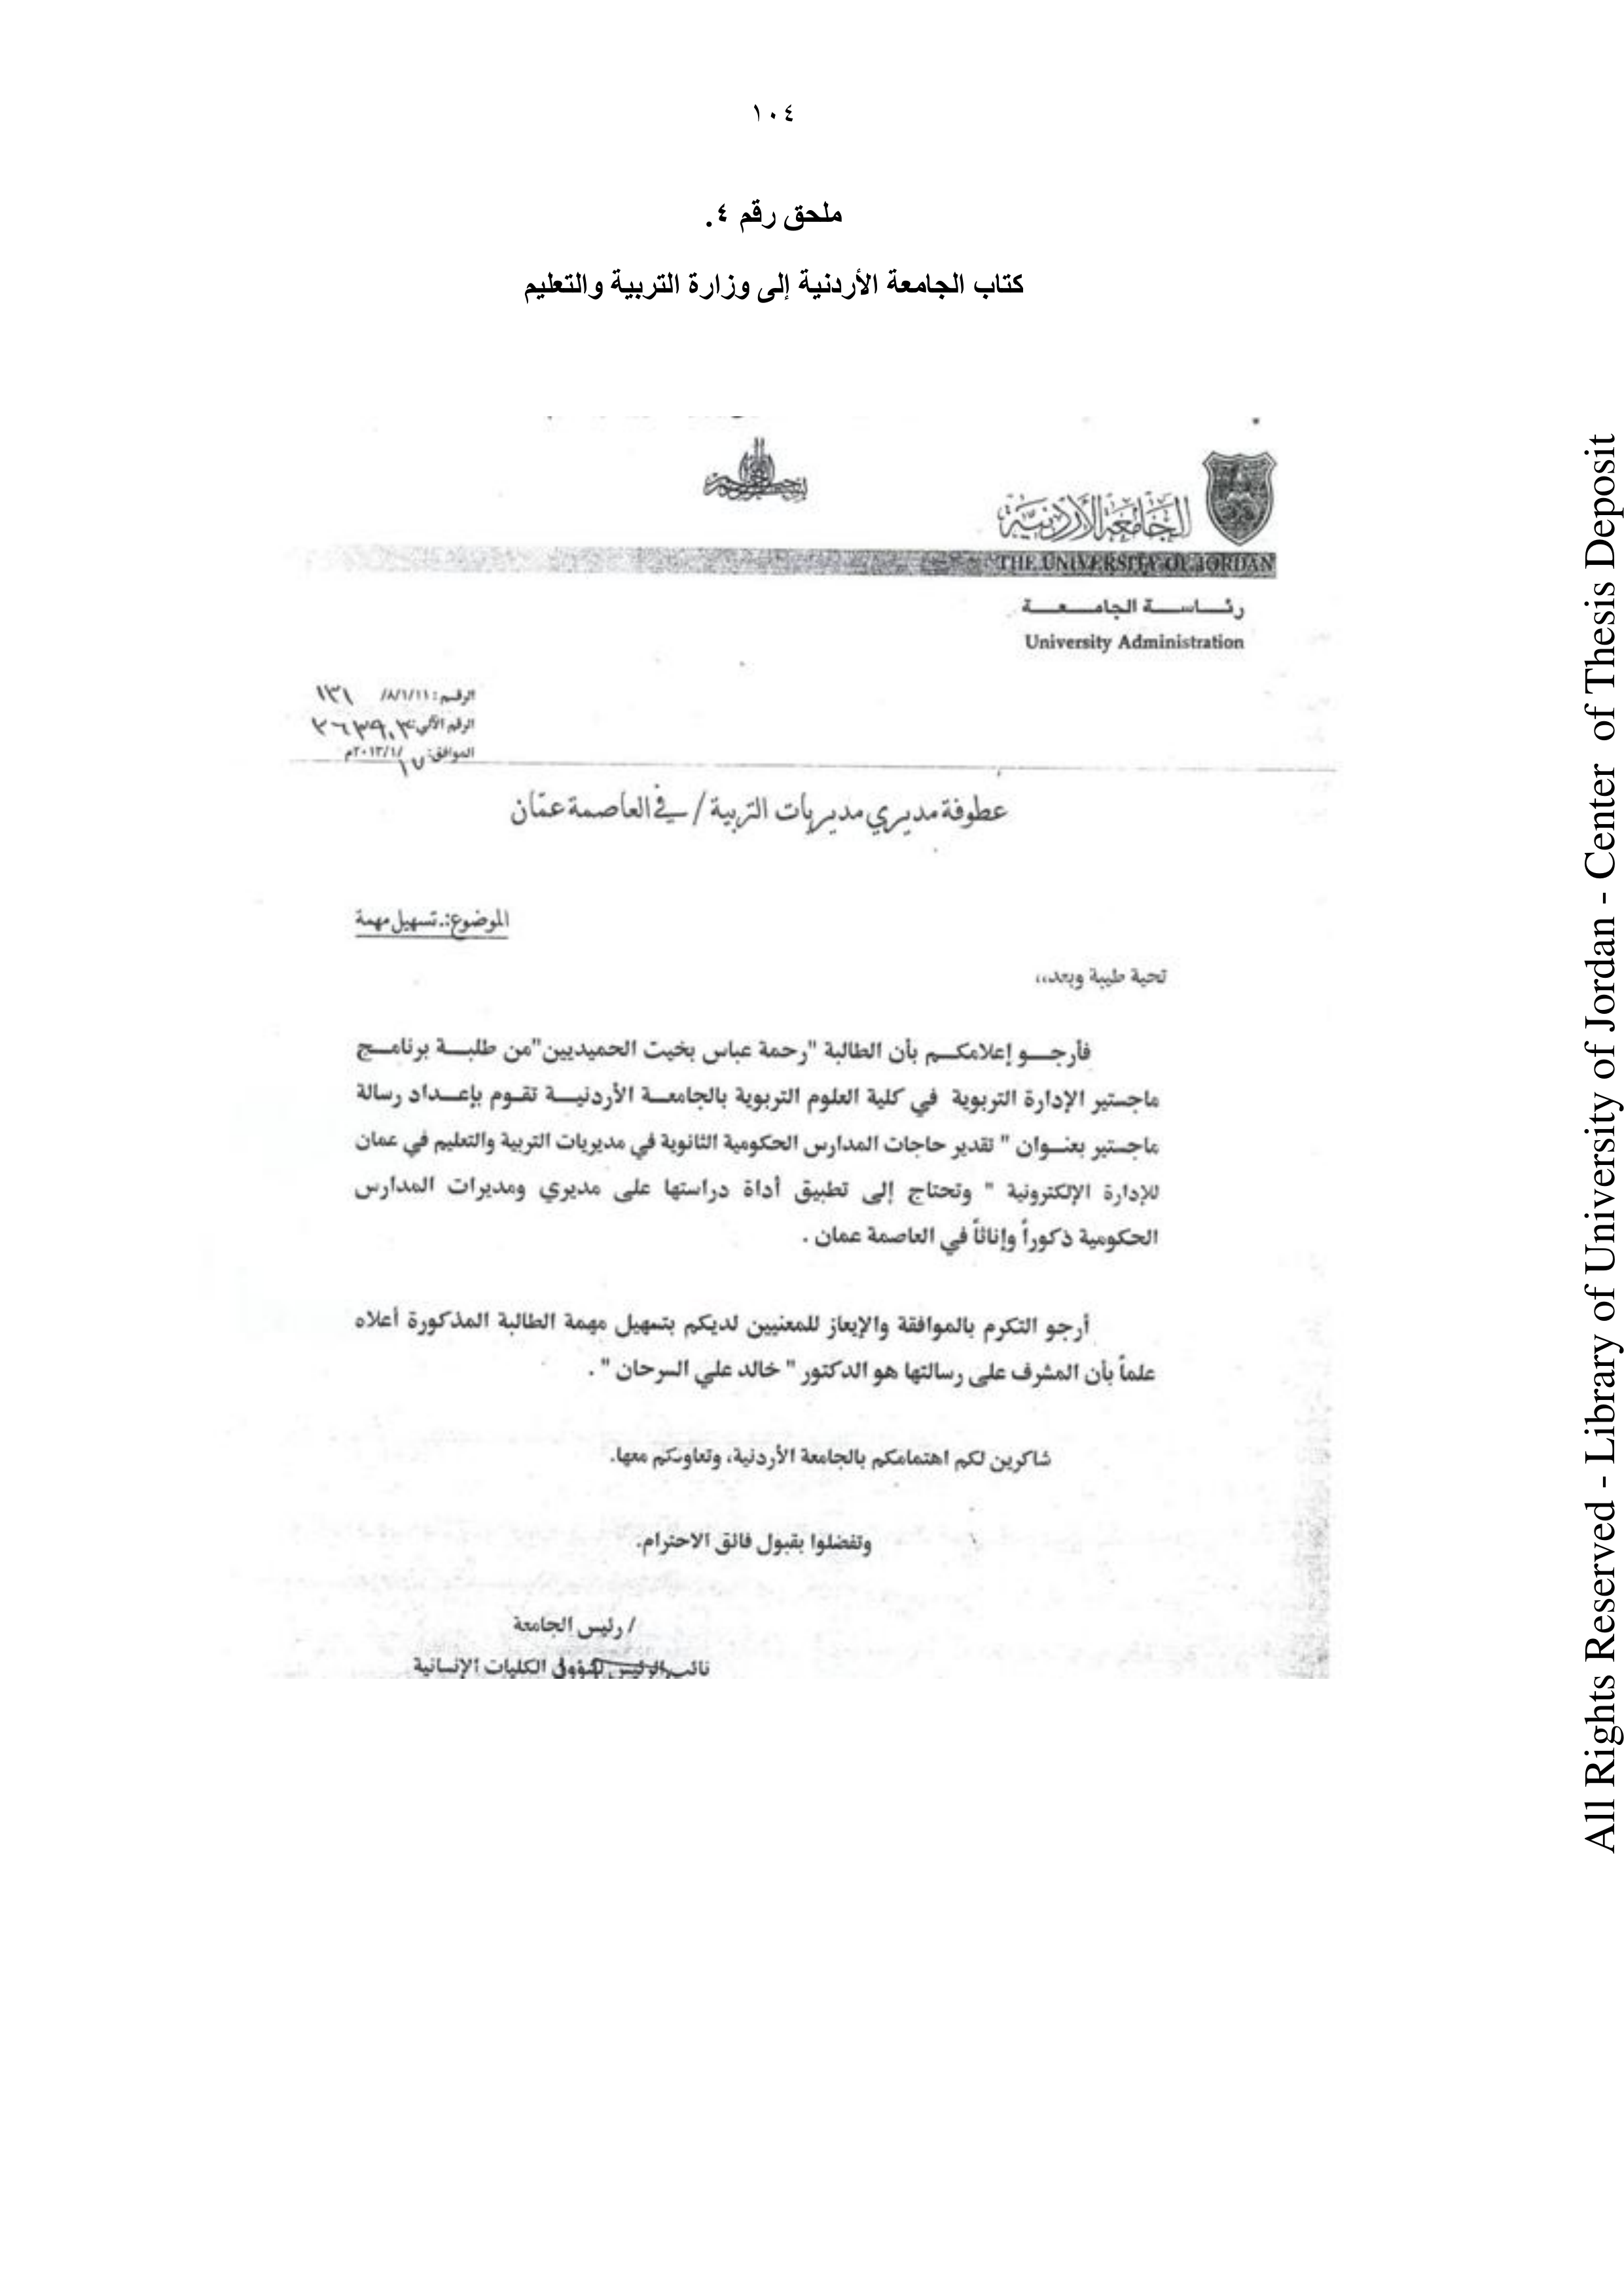 ١٠٤
ملحق رقم ٤.
كتاب الجامعة الأردنية إلى وزارة التربية والتعليم
الجامعة الأردنية
THE UNIVERSITY OF JORDAN
رئـــاســـة الجامـــعـــة
University Administration
الرقم: ٨/١/١١/ ١٣١
الرقم الآلي:
الموافق: ١٥/١/٢٠١٣م
عطوفة مديري مديريات التربية / في العاصمة عمّان
الموضوع:. تسهيل مهمة
تحية طيبة وبعد،،
فأرجــو إعلامكــم بأن الطالبة "رحمة عباس بخيت الحميديين"من طلبــة برنامــج
ماجستير الإدارة التربوية في كلية العلوم التربوية بالجامعــة الأردنيــة تقــوم بإعــداد رسالة
ماجستير بعنــوان " تقدير حاجات المدارس الحكومية الثانوية في مديريات التربية والتعليم في عمان
للإدارة الإلكترونية " وتحتاج إلى تطبيق أداة دراستها على مديري ومديرات المدارس
الحكومية ذكوراً وإناثاً في العاصمة عمان .
أرجو التكرم بالموافقة والإيعاز للمعنيين لديكم بتسهيل مهمة الطالبة المذكورة أعلاه
علماً بأن المشرف على رسالتها هو الدكتور " خالد علي السرحان " .
شاكرين لكم اهتمامكم بالجامعة الأردنية، وتعاونكم معها.
وتفضلوا بقبول فائق الاحترام.
/ رئيس الجامعة
نائب الرئيس لشؤون الكليات الإنسانية
All Rights Reserved - Library of University of Jordan - Center of Thesis Deposit